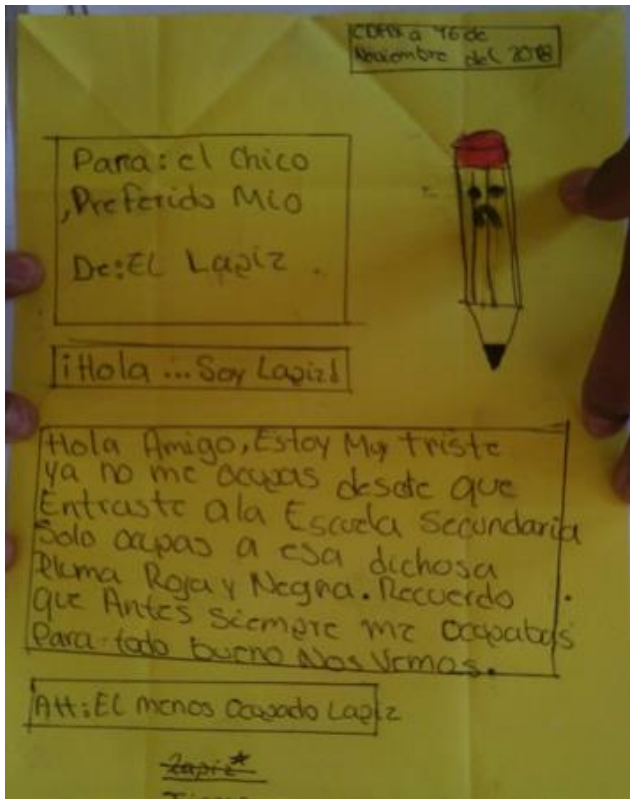 CDMX a 16 de
Noviembre del 2018
Para: el Chico
,Preferido Mio
De: EL Lapiz .
¡Hola ... Soy Lapiz!
Hola Amigo, Estoy Muy triste
ya no me ocupas desde que
Entraste ala Escuela Secundaria
Solo ocupas a esa dichosa
Pluma Roja y Negra. Recuerdo
que Antes siempre me ocupabas
Para todo bueno Nos Vemos.
Att: EL menos Ocupado Lapiz
Lapiz*